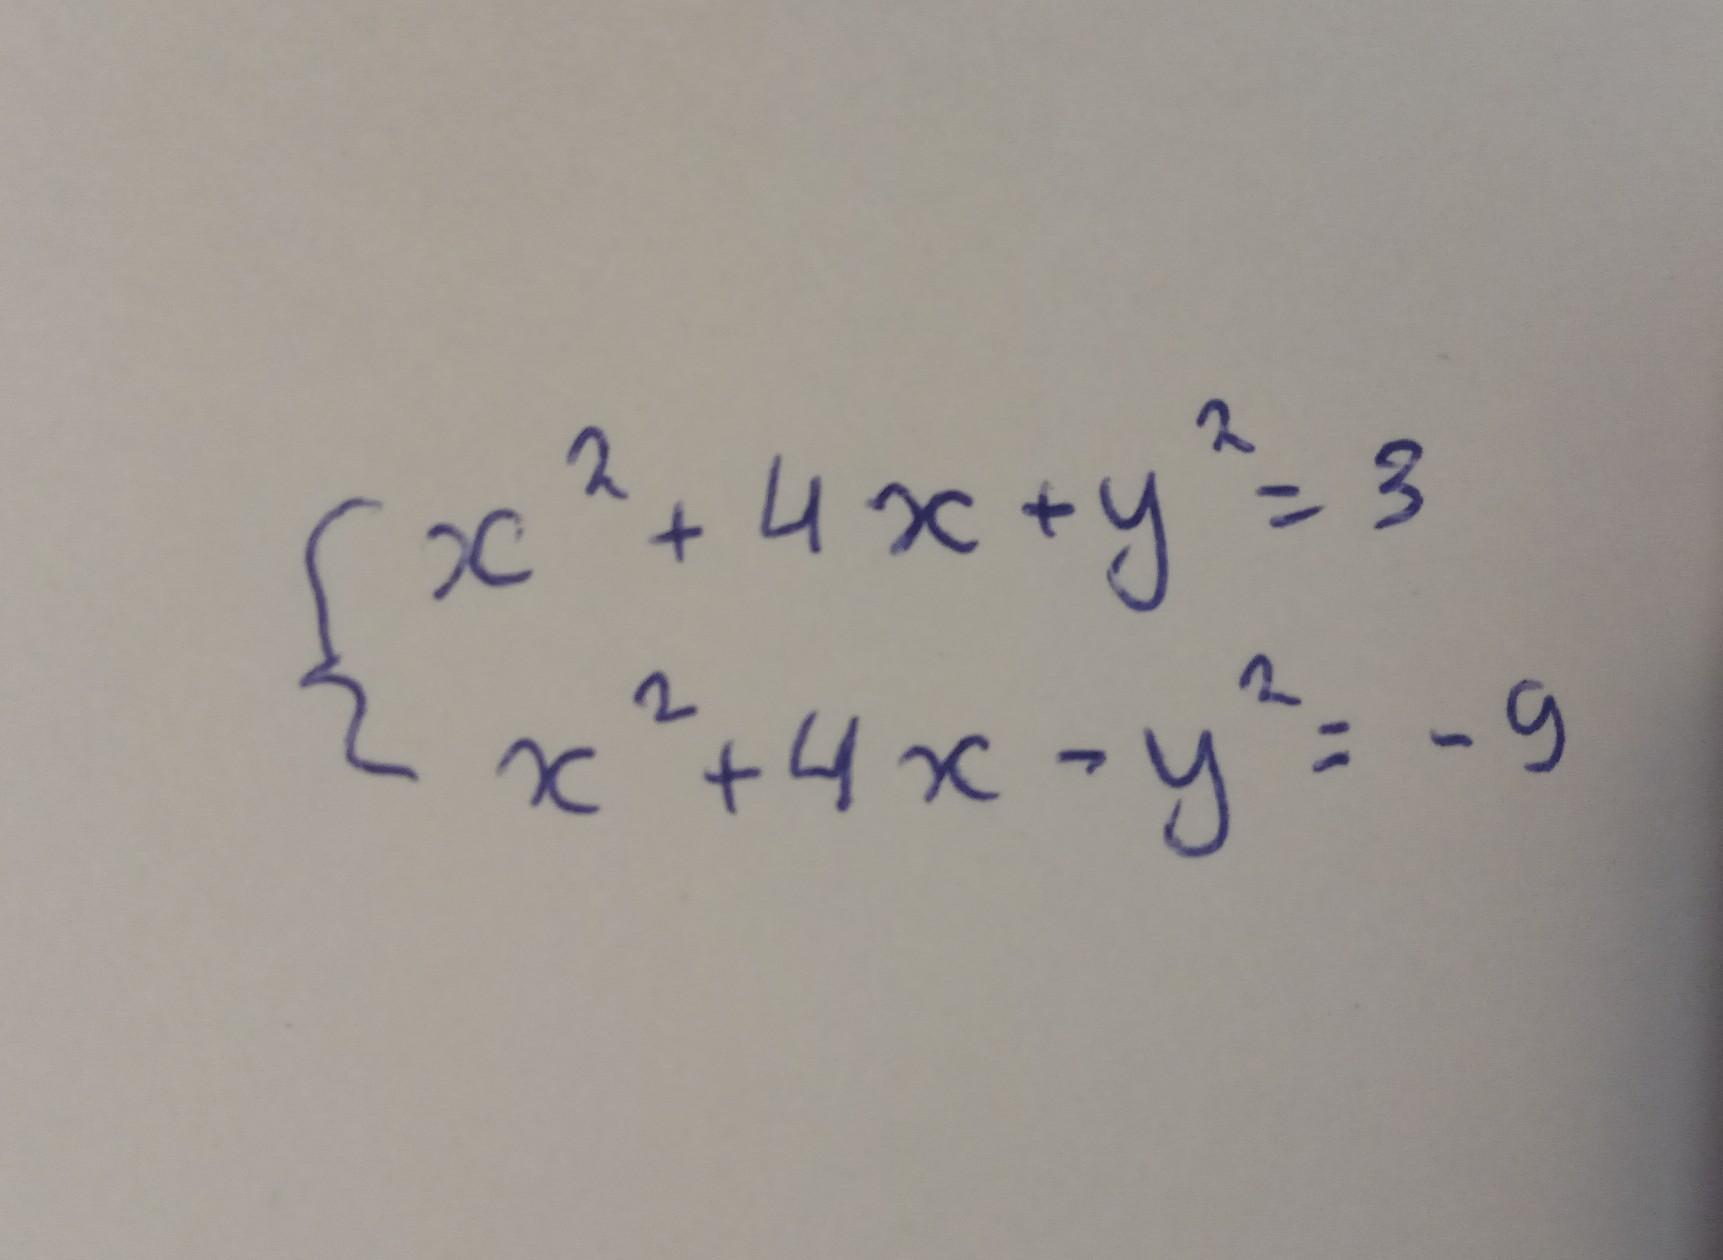 x² + 4x + y² = 3
x² + 4x - y² = -9